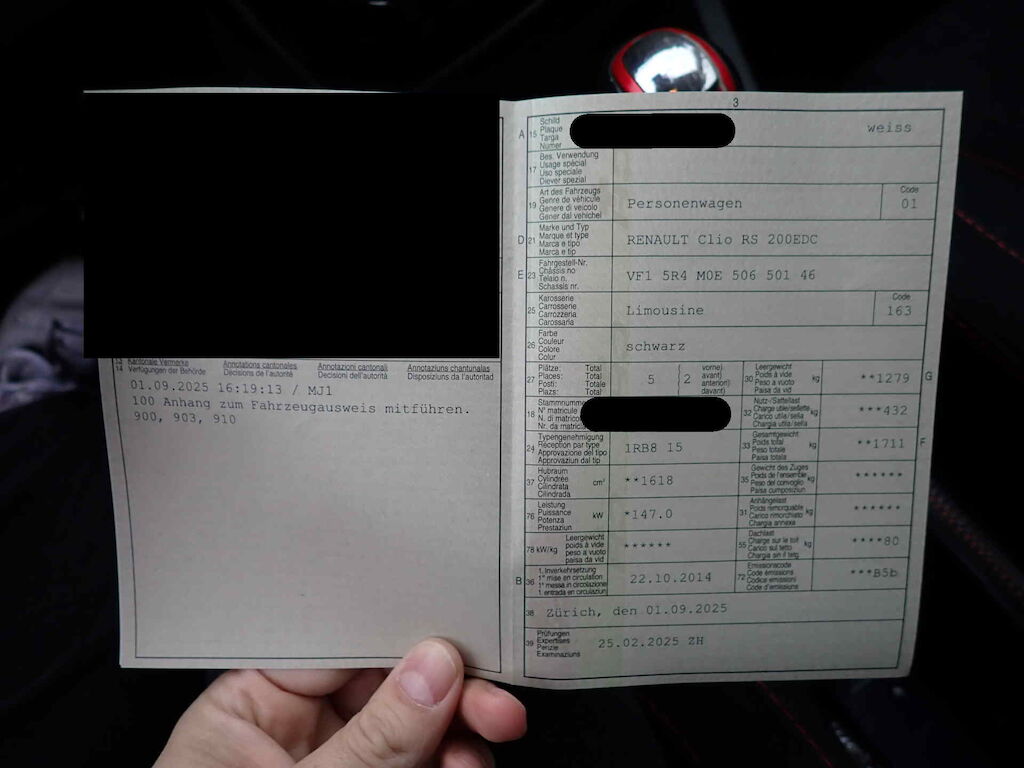 3
A 15 Schild
Plaque
Targa
Numer
weiss
17 Bes. Verwendung
Usage spécial
Uso speciale
Diever spezial
19 Art des Fahrzeugs
Genre de véhicule
Genere di veicolo
Gener dal vehichel
Personenwagen
Code
01
D 21 Marke und Typ
Marque et type
Marca e tipo
Marca e tip
RENAULT Clio RS 200EDC
E 23 Fahrgestell-Nr.
Châssis no
Telaio n.
Schassis nr.
VF1 5R4 M0E 506 501 46
25 Karosserie
Carrosserie
Carrozzeria
Carossaria
Limousine
Code
163
26 Farbe
Couleur
Colore
Colur
schwarz
27 Plätze: Total
Places: Total
Posti: Totale
Plazs: Total
5
2
vorne)
avant)
anteriori)
davant)
30 Leergewicht
Poids à vide
Peso a vuoto
Paisa da vid
kg
**1279
G
18 Stammnummer
N° matricule
N. di matricola
Nr. da matricla
32 Nutz-/Sattellast
Charge utile/sellette
Carico utile/sella
Chargia utila/sella
kg
***432
24 Typengenehmigung
Réception par type
Approvazione del tipo
Approvaziun dal tip
1RB8 15
33 Gesamtgewicht
Poids total
Peso totale
Paisa totala
kg
**1711
F
37 Hubraum
Cylindrée
Cilindrata
Cilindrada
cm³
**1618
35 Gewicht des Zuges
Poids de l'ensemble
Peso del convoglio
Paisa cumposiziun
kg
******
76 Leistung
Puissance
Potenza
Prestaziun
kW
*147.0
31 Anhängelast
Poids remorquable
Carico rimorchiato
Chargia annexa
kg
******
78 kW/kg
Leergewicht
poids à vide
peso a vuoto
paisa da vid
******
55 Dachlast
Charge sur le toit
Carico sul tetto
Chargia sin il tetg
kg
****80
B 36 1. Inverkehrsetzung
1re mise en circulation
1a messa in circolazione
1. entrada en circulaziun
22.10.2014
72 Emissionscode
Code émissions
Codice emissioni
Code d'emissiuns
***B5b
38 Zürich, den 01.09.2025
39 Prüfungen
Expertises
Perizie
Examinaziuns
25.02.2025 ZH
14 Kantonale Vermerke
Verfügungen der Behörde
Annotations cantonales
Décisions de l'autorité
Annotazioni cantonali
Decisioni dell'autorità
Annotaziuns chantunalas
Disposiziuns da l'autoritad
01.09.2025 16:19:13 / MJ1
100 Anhang zum Fahrzeugausweis mitführen.
900, 903, 910